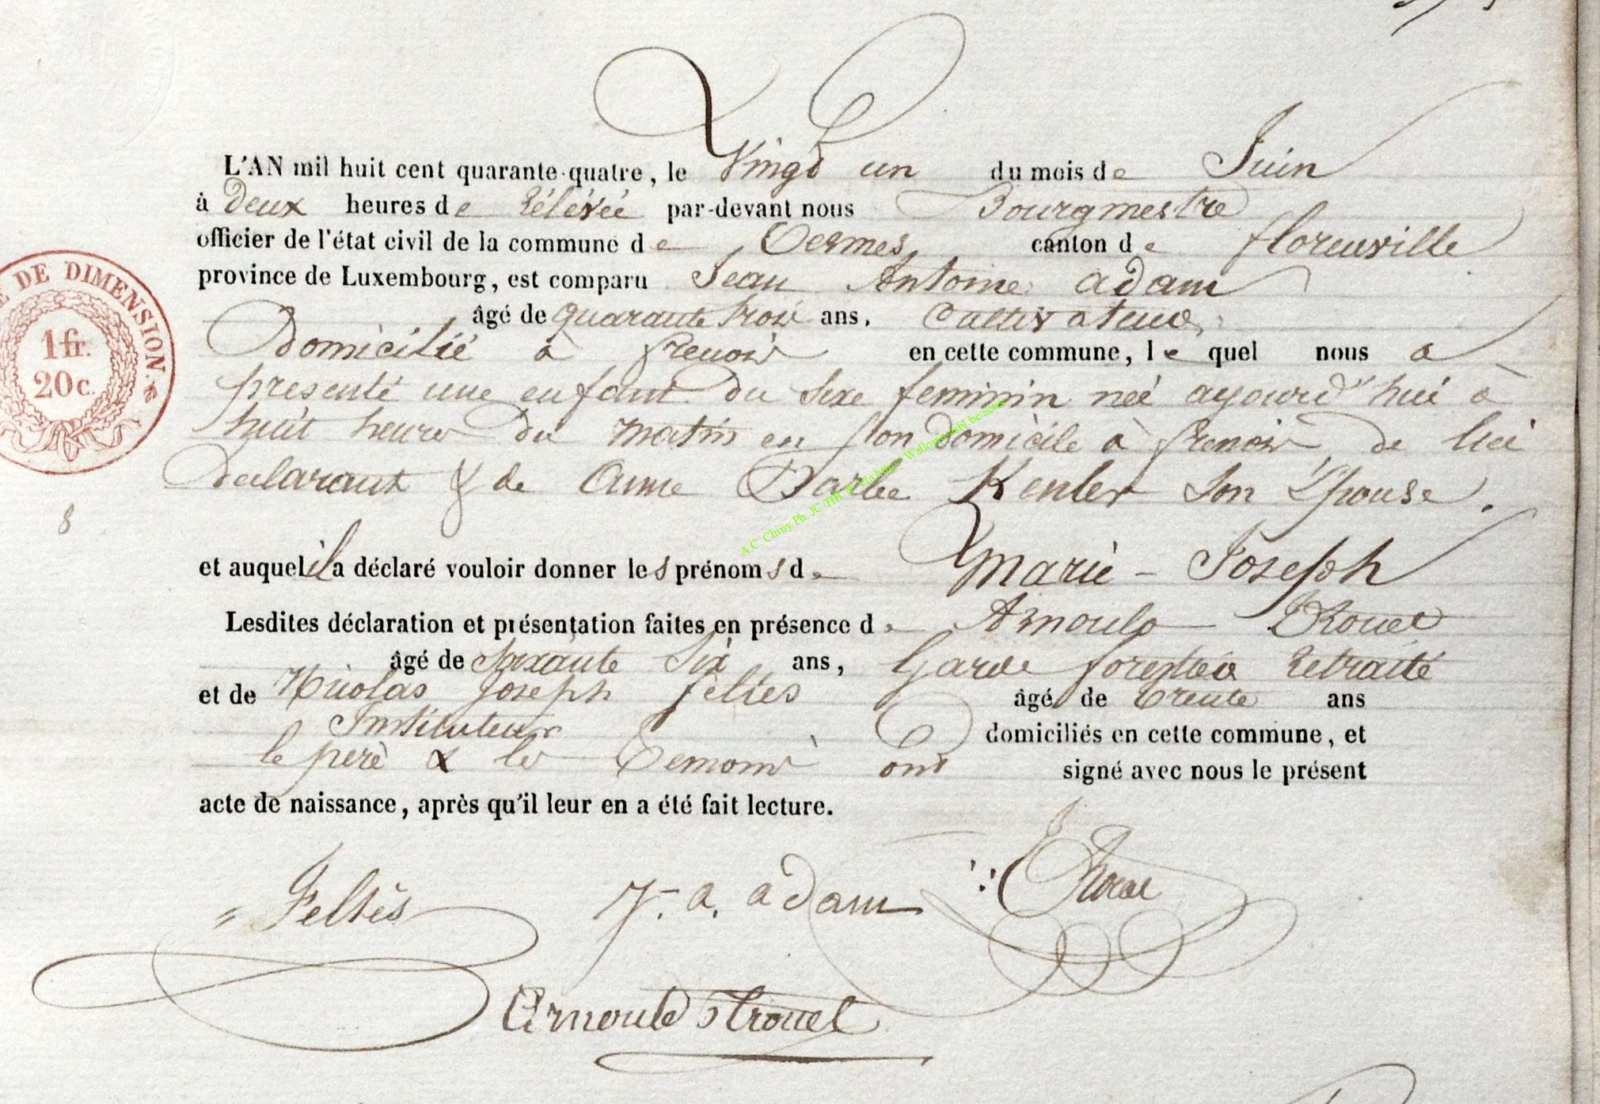 L'AN mil huit cent quarante-quatre, le Vingt un du mois de Juin
à Deux heures de rélévée par-devant nous Bourgmestre
officier de l'état civil de la commune de Termes, canton de florenville
province de Luxembourg, est comparu Jean Antoine adam
âgé de quarante trois ans, Cultivateur,
Domicilié à frenois en cette commune, le quel nous a
presenté une enfant du sexe feminin née aujourd'hui à
huit heures du matin en son domicile à frenois, de lui
declarant & de Anne Barbe Kenler son Epouse.
et auquel il a déclaré vouloir donner les prénoms de Marie-Joseph
Lesdites déclaration et présentation faites en présence de Arnould Trouet
âgé de soixante six ans, Garde forestier retraité
et de Nicolas Joseph feltès âgé de trente ans
Instituteur domiciliés en cette commune, et
le père & les temoins ont signé avec nous le présent
acte de naissance, après qu'il leur en a été fait lecture.
Feltès J. a. adam
Arnould Trouet
E DE DIMENSION.
1 fr.
20 c.
8